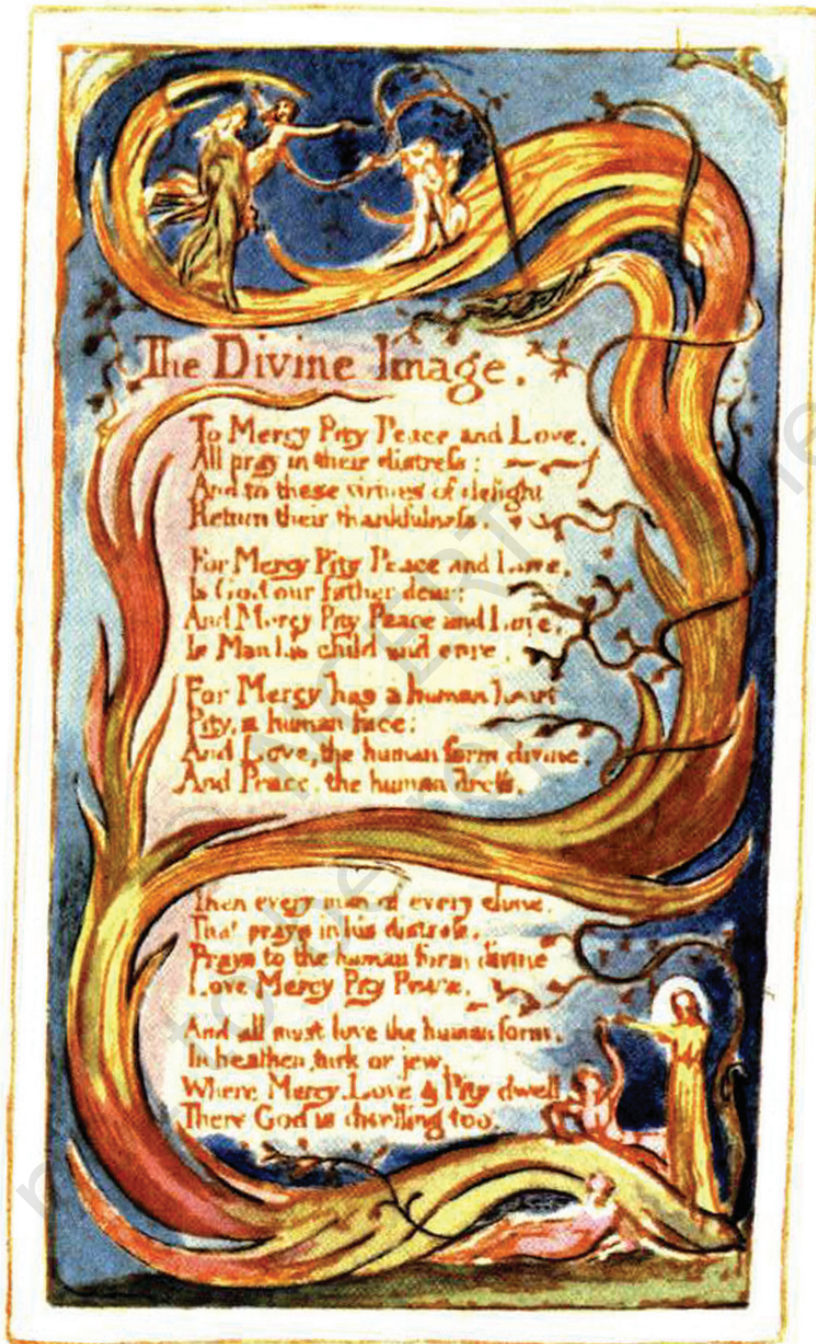 The Divine Image.
To Mercy Pity Peace and Love,
All pray in their distress:
And to these virtues of delight
Return their thankfulness.
For Mercy Pity Peace and Love,
Is God our father dear:
And Mercy Pity Peace and Love,
Is Man his child and care.
For Mercy has a human heart
Pity, a human face:
And Love, the human form divine,
And Peace, the human dress.
Then every man of every clime,
That prays in his distress,
Prays to the human form divine
Love Mercy Pity Peace.
And all must love the human form,
In heathen, turk or jew,
Where Mercy, Love & Pity dwell
There God is dwelling too.